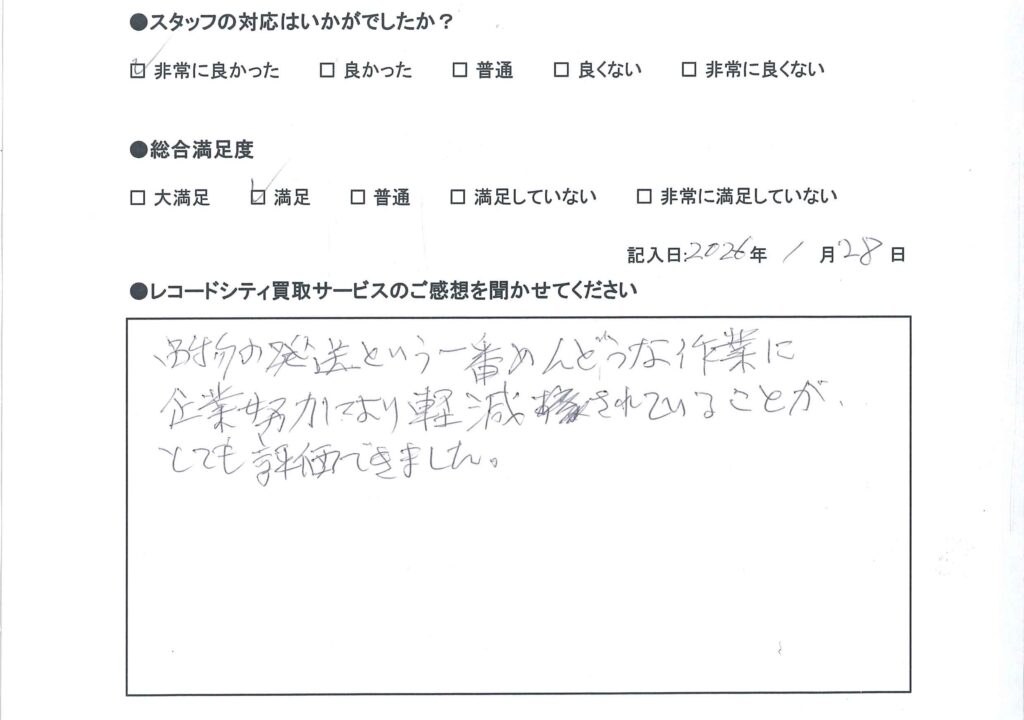 ●スタッフの対応はいかがでしたか？
☑ 非常に良かった □ 良かった □ 普通 □ 良くない □ 非常に良くない
●総合満足度
□ 大満足 ☑ 満足 □ 普通 □ 満足していない □ 非常に満足していない
記入日:2026年 1 月28日
●レコードシティ買取サービスのご感想を聞かせてください
の発送という一番めんどうな作業に
企業努力により軽減されていることが、
とても評価できました。